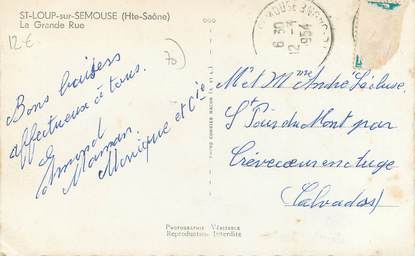 ST-LOUP-sur-SEMOUSE (Hte-Saône)
La Grande Rue
12€
70
Bons baisers
affectueux à tous.
Maman.
Monique et Cie
6 30
12 - 3
954
Mr et Mme André
St Pair du Mont par
Crèvecoeur en Auge
(Calvados)
PHOTOGRAPHIE VÉRITABLE
Reproduction Interdite